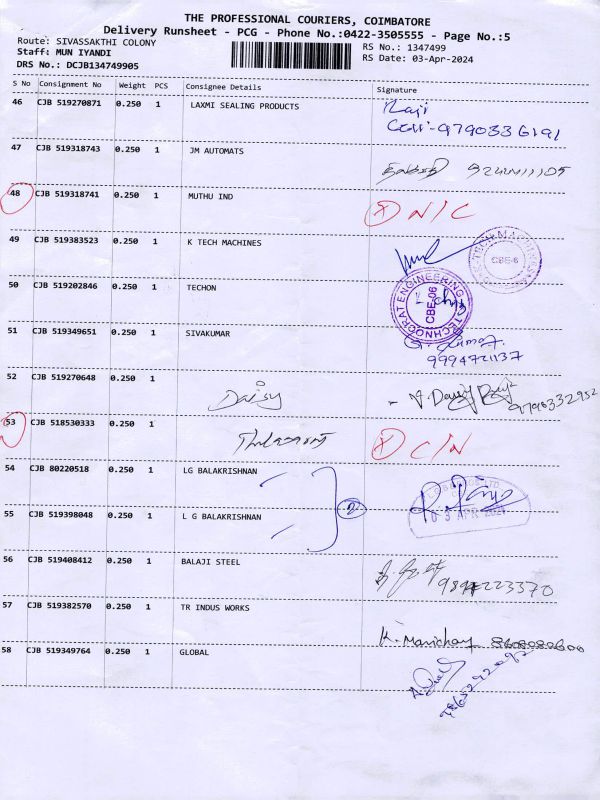 THE PROFESSIONAL COURIERS, COIMBATORE
Delivery Runsheet - PCG - Phone No.:0422-3505555 - Page No.:5
Route: SIVASSAKTHI COLONY
RS No.: 1347499
Staff: MUN IYANDI
RS Date: 03-Apr-2024
DRS No.: DCJB134749905
S No Consignment No Weight PCS Consignee Details Signature
46 CJB 519270871 0.250 1 LAXMI SEALING PRODUCTS Raji
9790336191
47 CJB 519318743 0.250 1 JM AUTOMATS
48 CJB 519318741 0.250 1 MUTHU IND N/C
49 CJB 519383523 0.250 1 K TECH MACHINES
K-TECH MACHINES
CBE-6
50 CJB 519202846 0.250 1 TECHON
ENGINEERING
CBE-06
51 CJB 519349651 0.250 1 SIVAKUMAR
9994721137
52 CJB 519270648 0.250 1 Daisy
9790332952
53 CJB 518530333 0.250 1 C/N
54 CJB 80220518 0.250 1 LG BALAKRISHNAN
2
03 APR 2024
55 CJB 519398048 0.250 1 L G BALAKRISHNAN
56 CJB 519408412 0.250 1 BALAJI STEEL
57 CJB 519382570 0.250 1 TR INDUS WORKS
K. Manichay 8608080600
58 CJB 519349764 0.250 1 GLOBAL